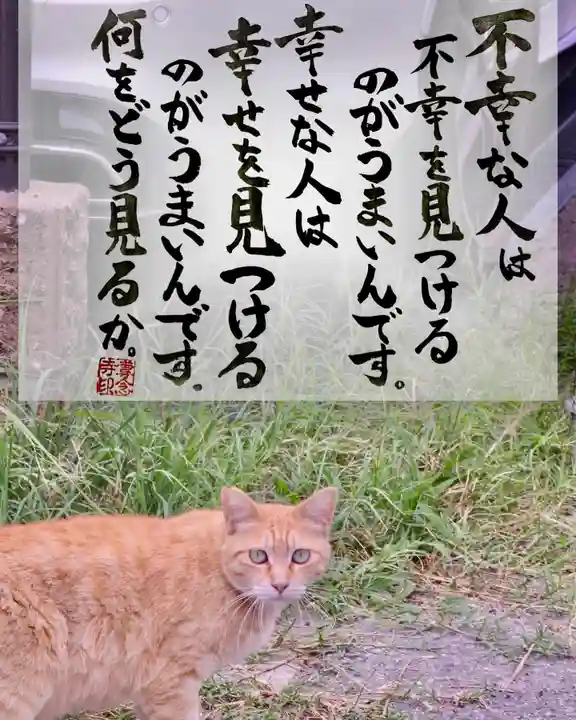 不幸な人は
不幸を見つける
のがうまいんです。
幸せな人は
幸せを見つける
のがうまいんです.
何をどう見るか。
専念
寺印